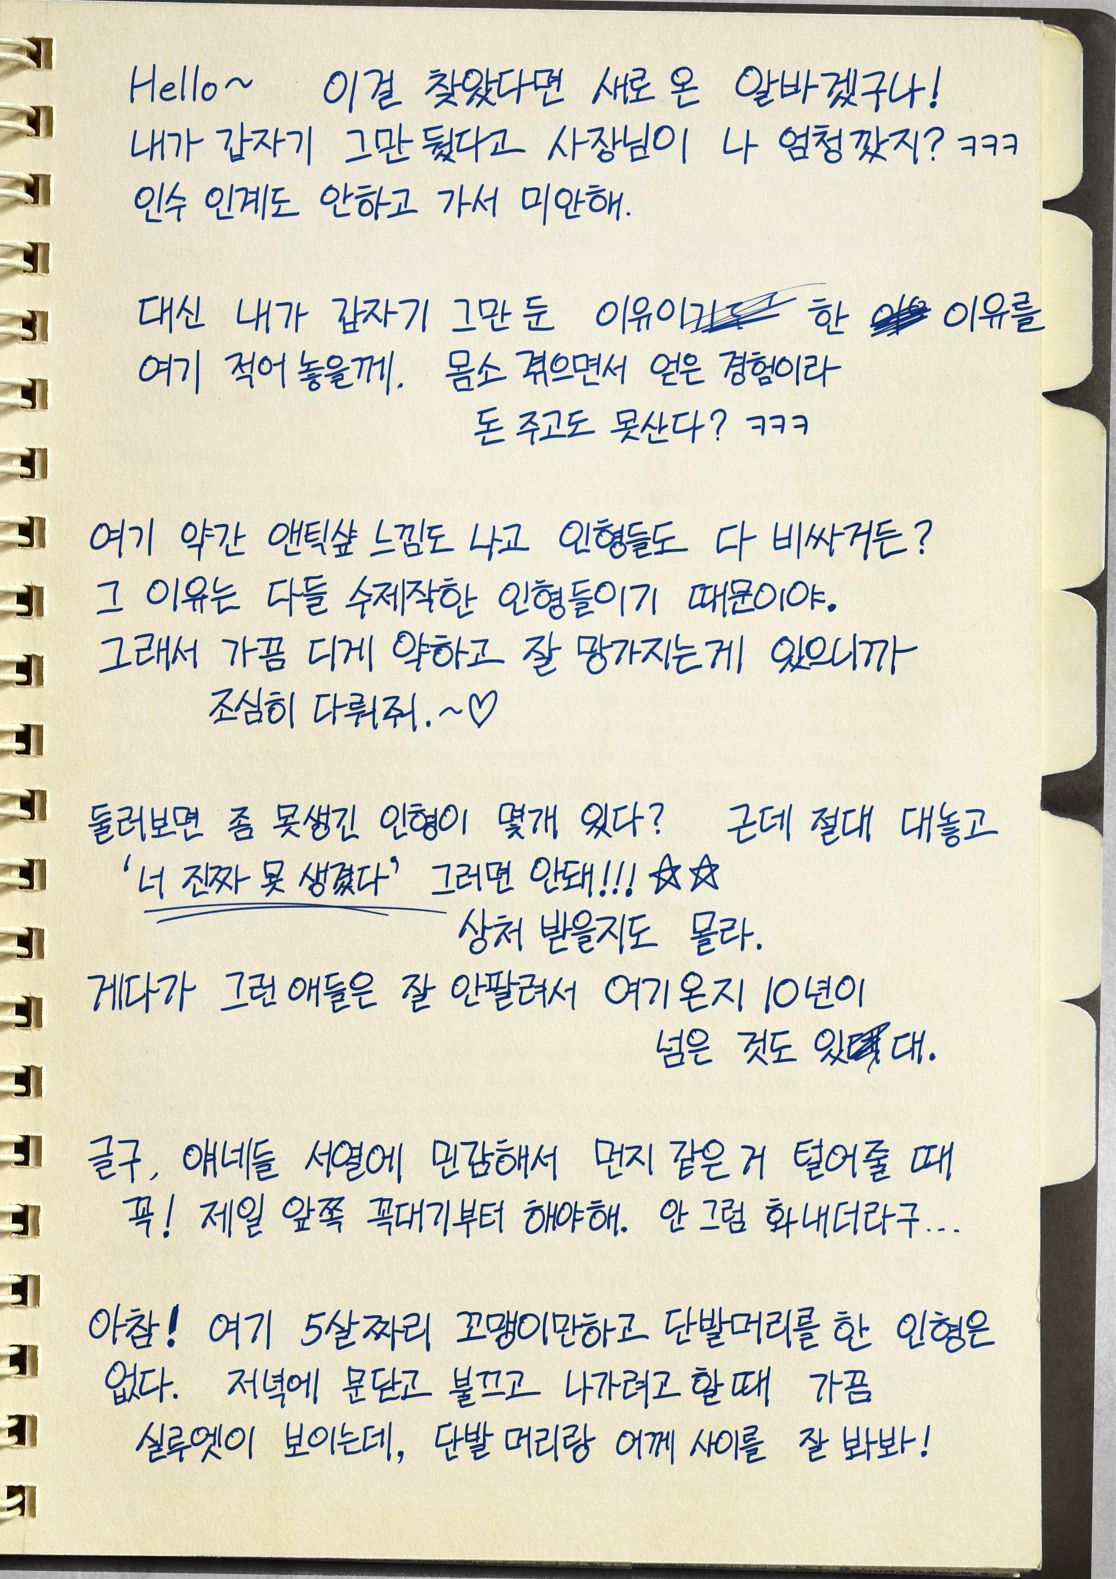 Hello~ 이걸 찾았다면 새로 온 알바겠구나!
내가 갑자기 그만뒀다고 사장님이 나 엄청 깠지? ㅋㅋㅋ
인수 인계도 안하고 가서 미안해.
대신 내가 갑자기 그만 둔 이유이 한 이유를
여기 적어 놓을께. 몸소 겪으면서 얻은 경험이라
돈 주고도 못산다? ㅋㅋㅋ
여기 약간 앤틱샾 느낌도 나고 인형들도 다 비싸거든?
그 이유는 다들 수제작한 인형들이기 때문이야.
그래서 가끔 디게 약하고 잘 망가지는게 있으니까
조심히 다뤄줘.~♡
둘러보면 좀 못생긴 인형이 몇개 있다? 근데 절대 대놓고
'너 진짜 못 생겼다' 그러면 안돼!!! ☆☆
상처 받을지도 몰라.
게다가 그런 애들은 잘 안팔려서 여기 온지 10년이
넘은 것도 있대.
글구, 얘네들 서열에 민감해서 먼지 같은 거 털어줄 때
꼭! 제일 앞쪽 꼭대기부터 해야해. 안 그럼 화내더라구...
아참! 여기 5살짜리 꼬맹이만하고 단발머리를 한 인형은
없다. 저녁에 문닫고 불끄고 나가려고 할 때 가끔
실루엣이 보이는데, 단발 머리랑 어께 사이를 잘 봐봐!